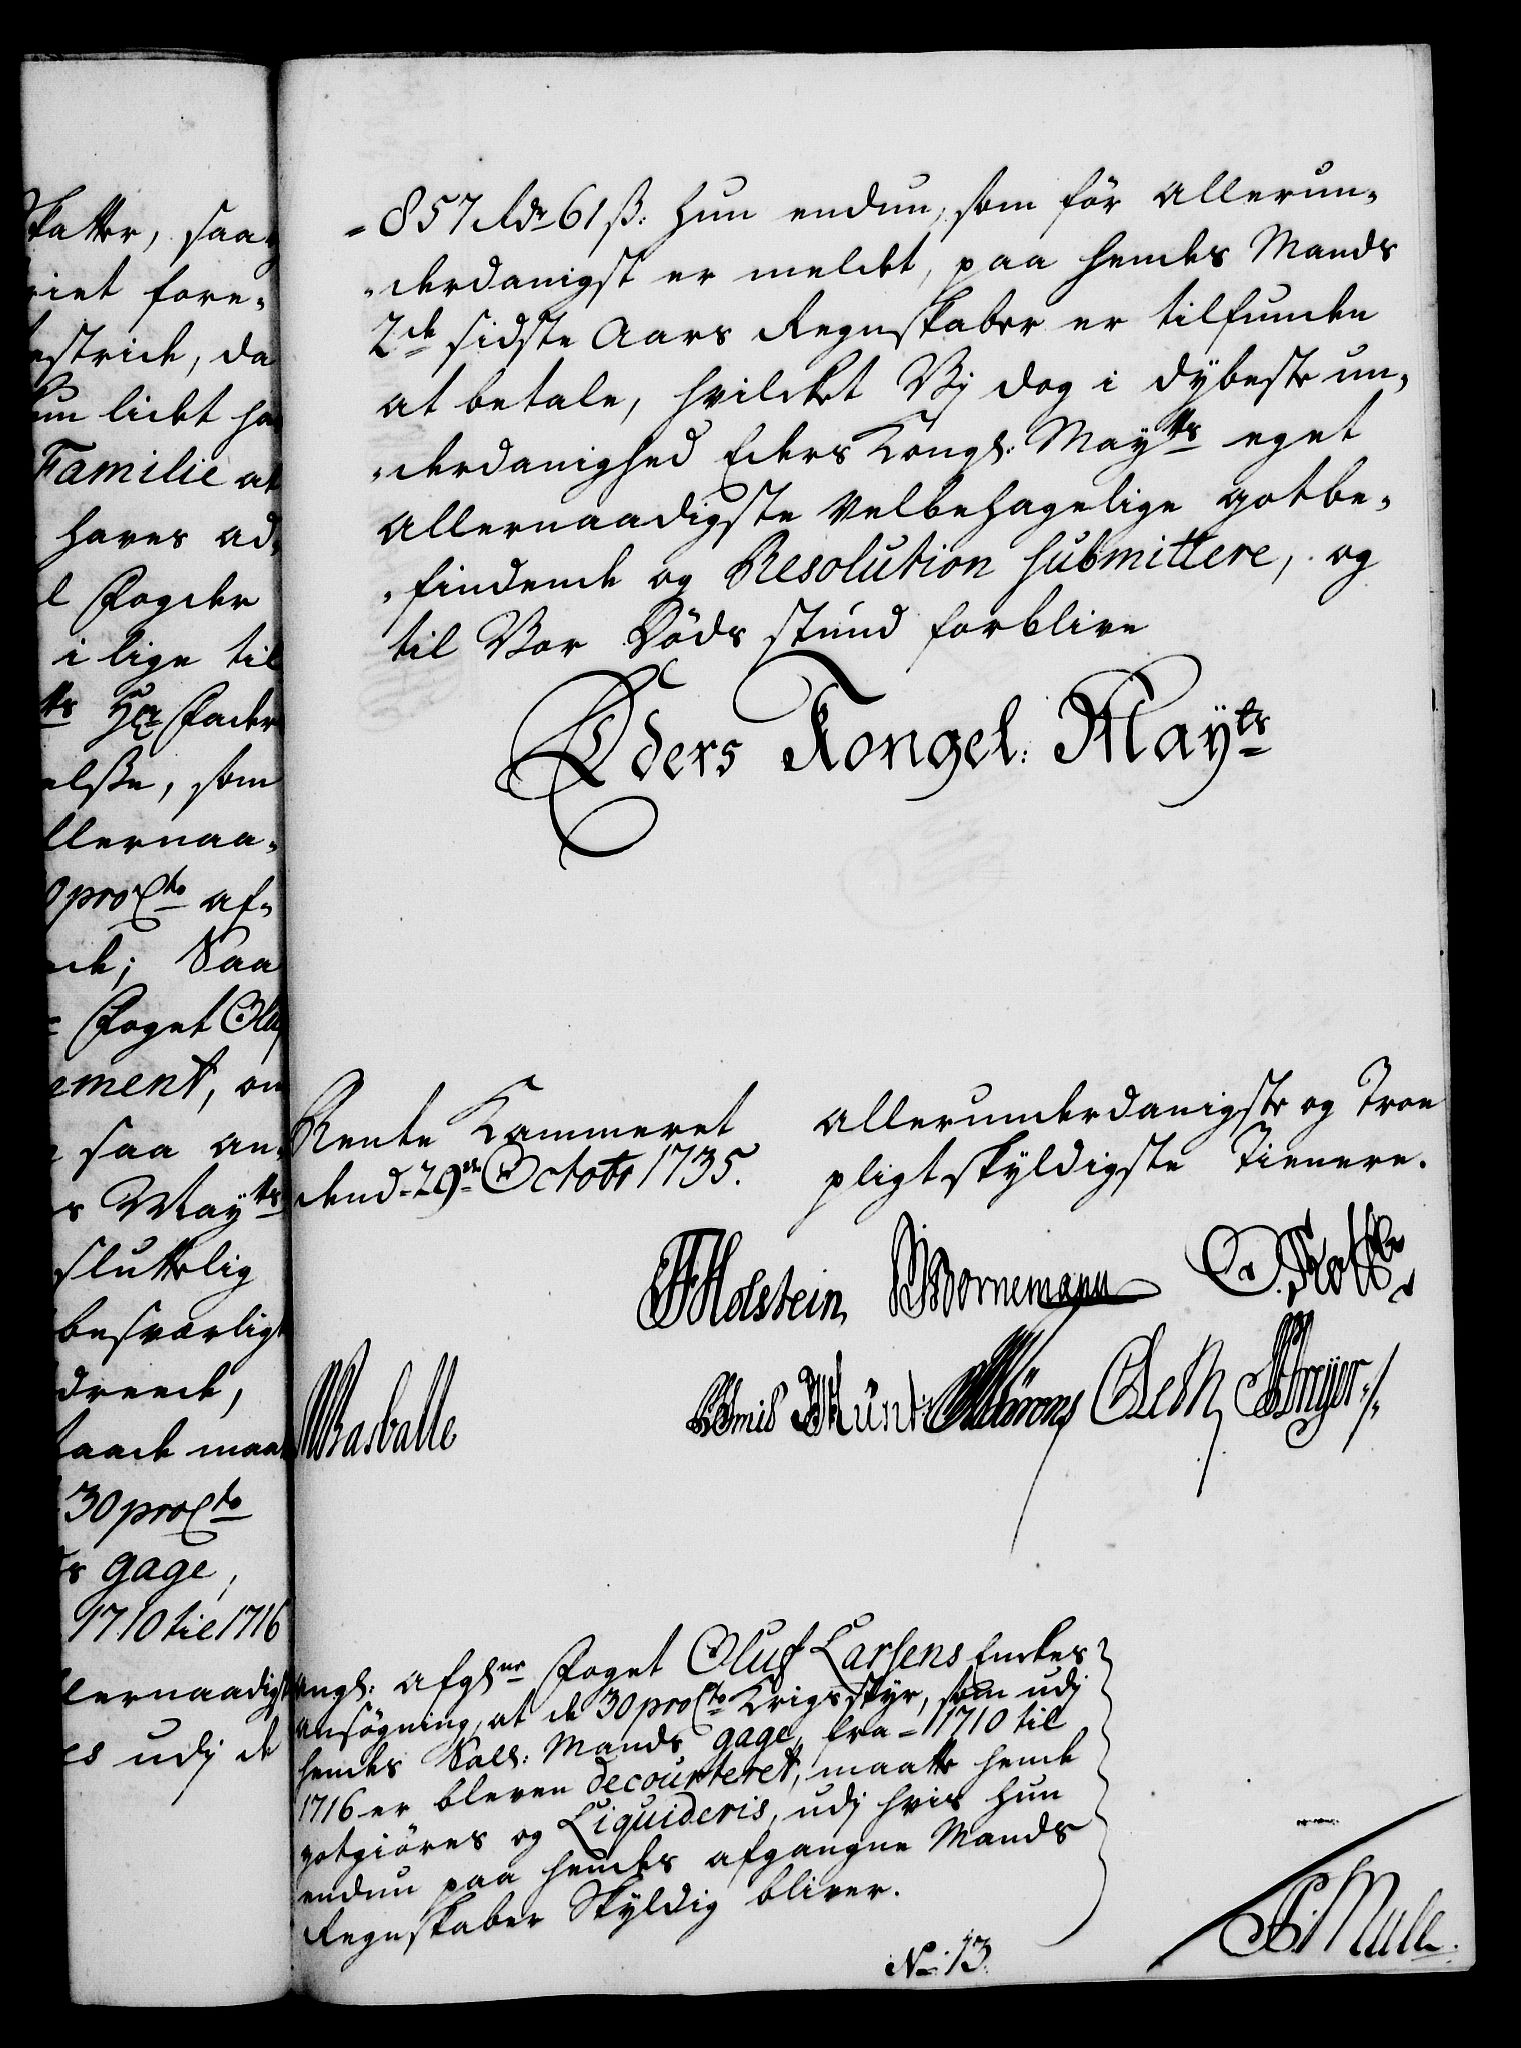 katter, saa
riet fore-
estride, da
un lidet ha
Familie at
haves ad-
l Fogder
i lige til
ts Hr Fader
else, som
llernaa-
0 pro Cto af-
nde; Saa
Foget Olu
ement, om
saa an-
s Mayts
sluttelig
besværligt
drende,
staade maa
30 pro Cto
s gage,
1710 til 1716
lernaadigst
es udj de
-857 Rdr 61 ß: hun endnu, som för allerun-
-derdanigst er meldet, paa hendes Mands
2de sidste Aars Regnskaber er tilfunden
at betale, hvilcket Vj dog i dybeste un-
-derdanighed Eders Kongl: Mayts eget
allernaadigste velbehagelige gotbe-
-findende og Resolution submittere, og
til Vor Döds stund forblive
Eders Kongel: Mayts
Rente Kammeret
dend 29de Octobr 1735.
allerunderdanigste og Troe
pligtskyldigste Tienere.
Holstein Bornemann
Basballe
angl: afgl:ne Foget Oluf Larsens Enckes
ansögning, at de 30 pro Cto Krigsstyr, som udj
hendes Sal: Mands gage, fra 1710 til
1716 er bleven decourteret, maatte hende
gotgiöres og Liquideris, udj hvis hun
endnu paa hendes afgangne Mands
Regnskaber Skyldig bliver.
No: 13.